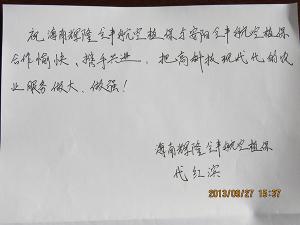 祝海南辉隆全丰航空植保与安阳全丰航空植保
合作愉快、携手共进,把高科技现代化的农
业服务做大、做强!
海南辉隆全丰航空植保
代红滨
2013/09/27 15:37